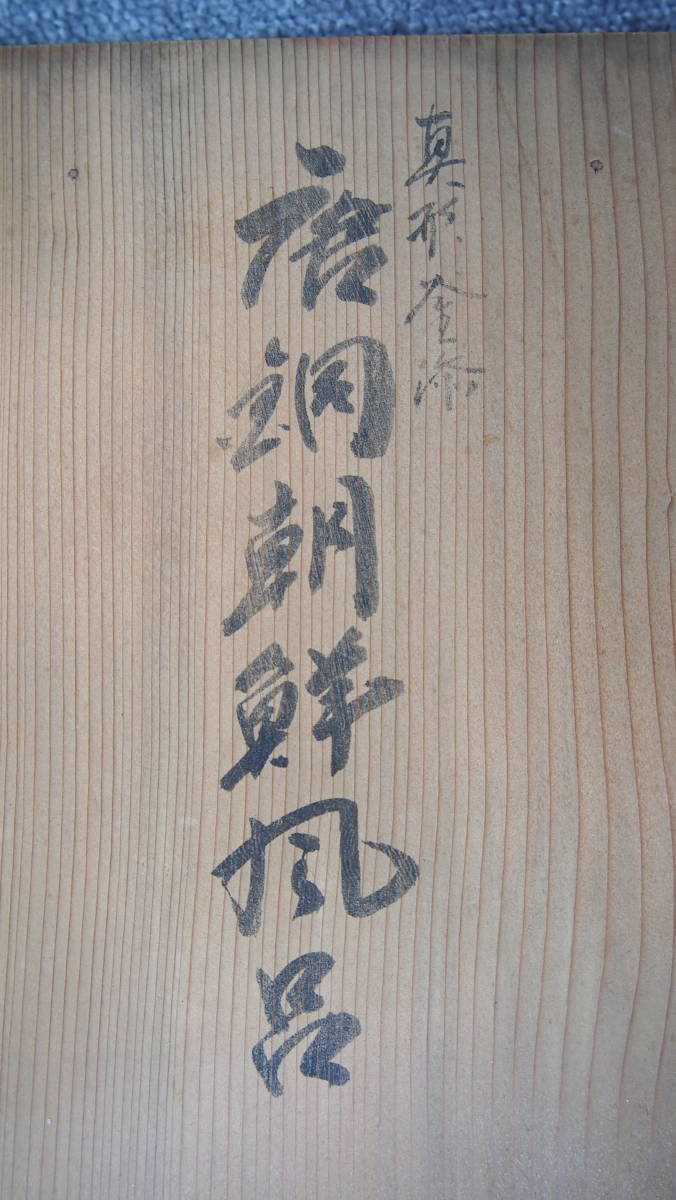 真形釜添
唐銅朝鮮風呂